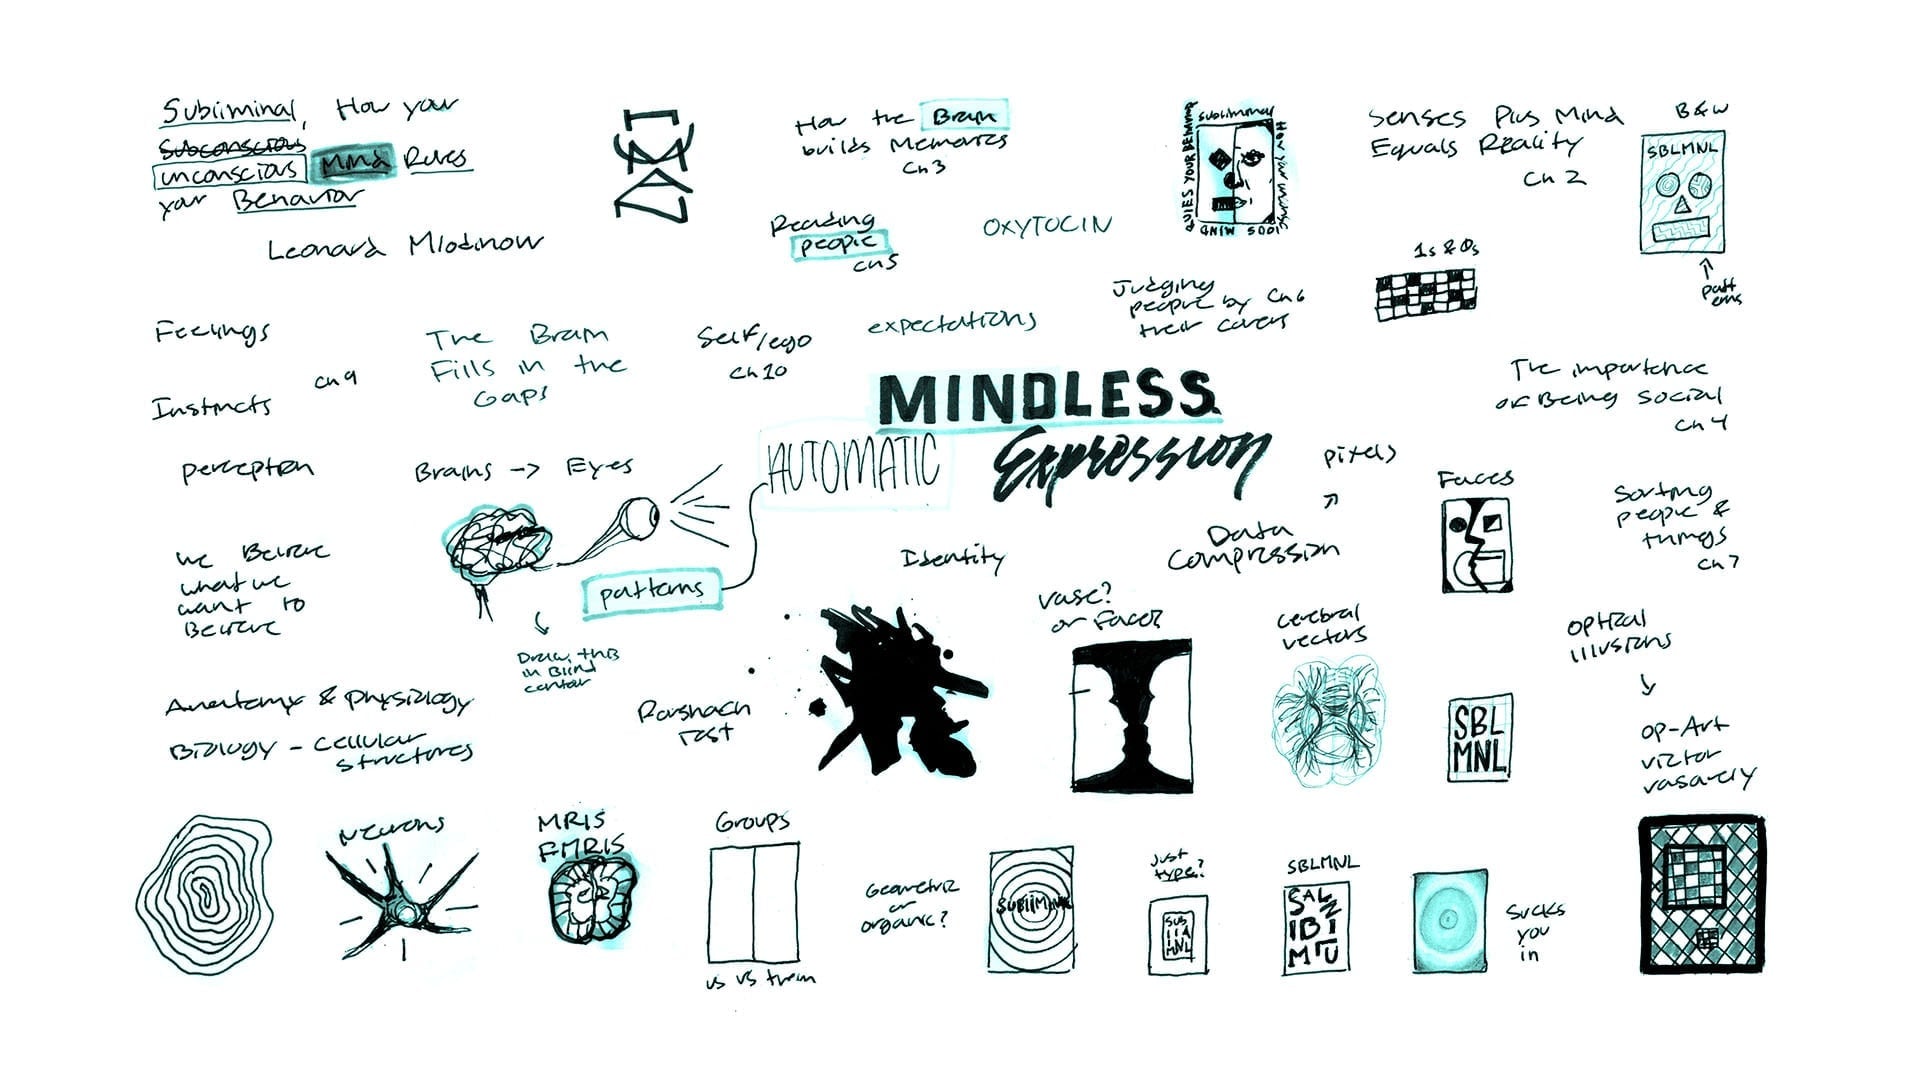 Subliminal, How your
subconscious
unconscious Mind Rules
your Behavior
Leonard Mlodinow
How the Brain
builds Memories
Ch 3
Reading
people
Ch 5
OXYTOCIN
subliminal
How your uncons
cious MIND
RULES YOUR BEHAVIOR
Senses Plus Mind
Equals Reality
Ch 2
B&W
SBLMNL
patt
erns
1s & 0s
Judging
people by Ch 6
their covers
Feelings
Instincts
Ch 9
The Brain
Fills in the
Gaps
Self/ego
Ch 10
expectations
MINDLESS
Expression
AUTOMATIC
The importance
of Being social
Ch 4
perception
Brains -> Eyes
pixels
Faces
Sorting
people &
things
Ch 7
We Believe
what we
want to
Believe
patterns
Draw this
in Blind
contour
Identity
Data
Compression
vase?
or Faces
cerebral
vectors
optical
illusions
Anatomy & physiology
Biology - cellular
structures
Rorshach
test
SBL
MNL
op-Art
victor
vasarely
Neurons
MRIS
FMRIS
Groups
us vs them
Geometric
or
organic?
SUBLIMINL
just
type?
SUB
LIA
MNL
SBLMNL
sucks
you
in